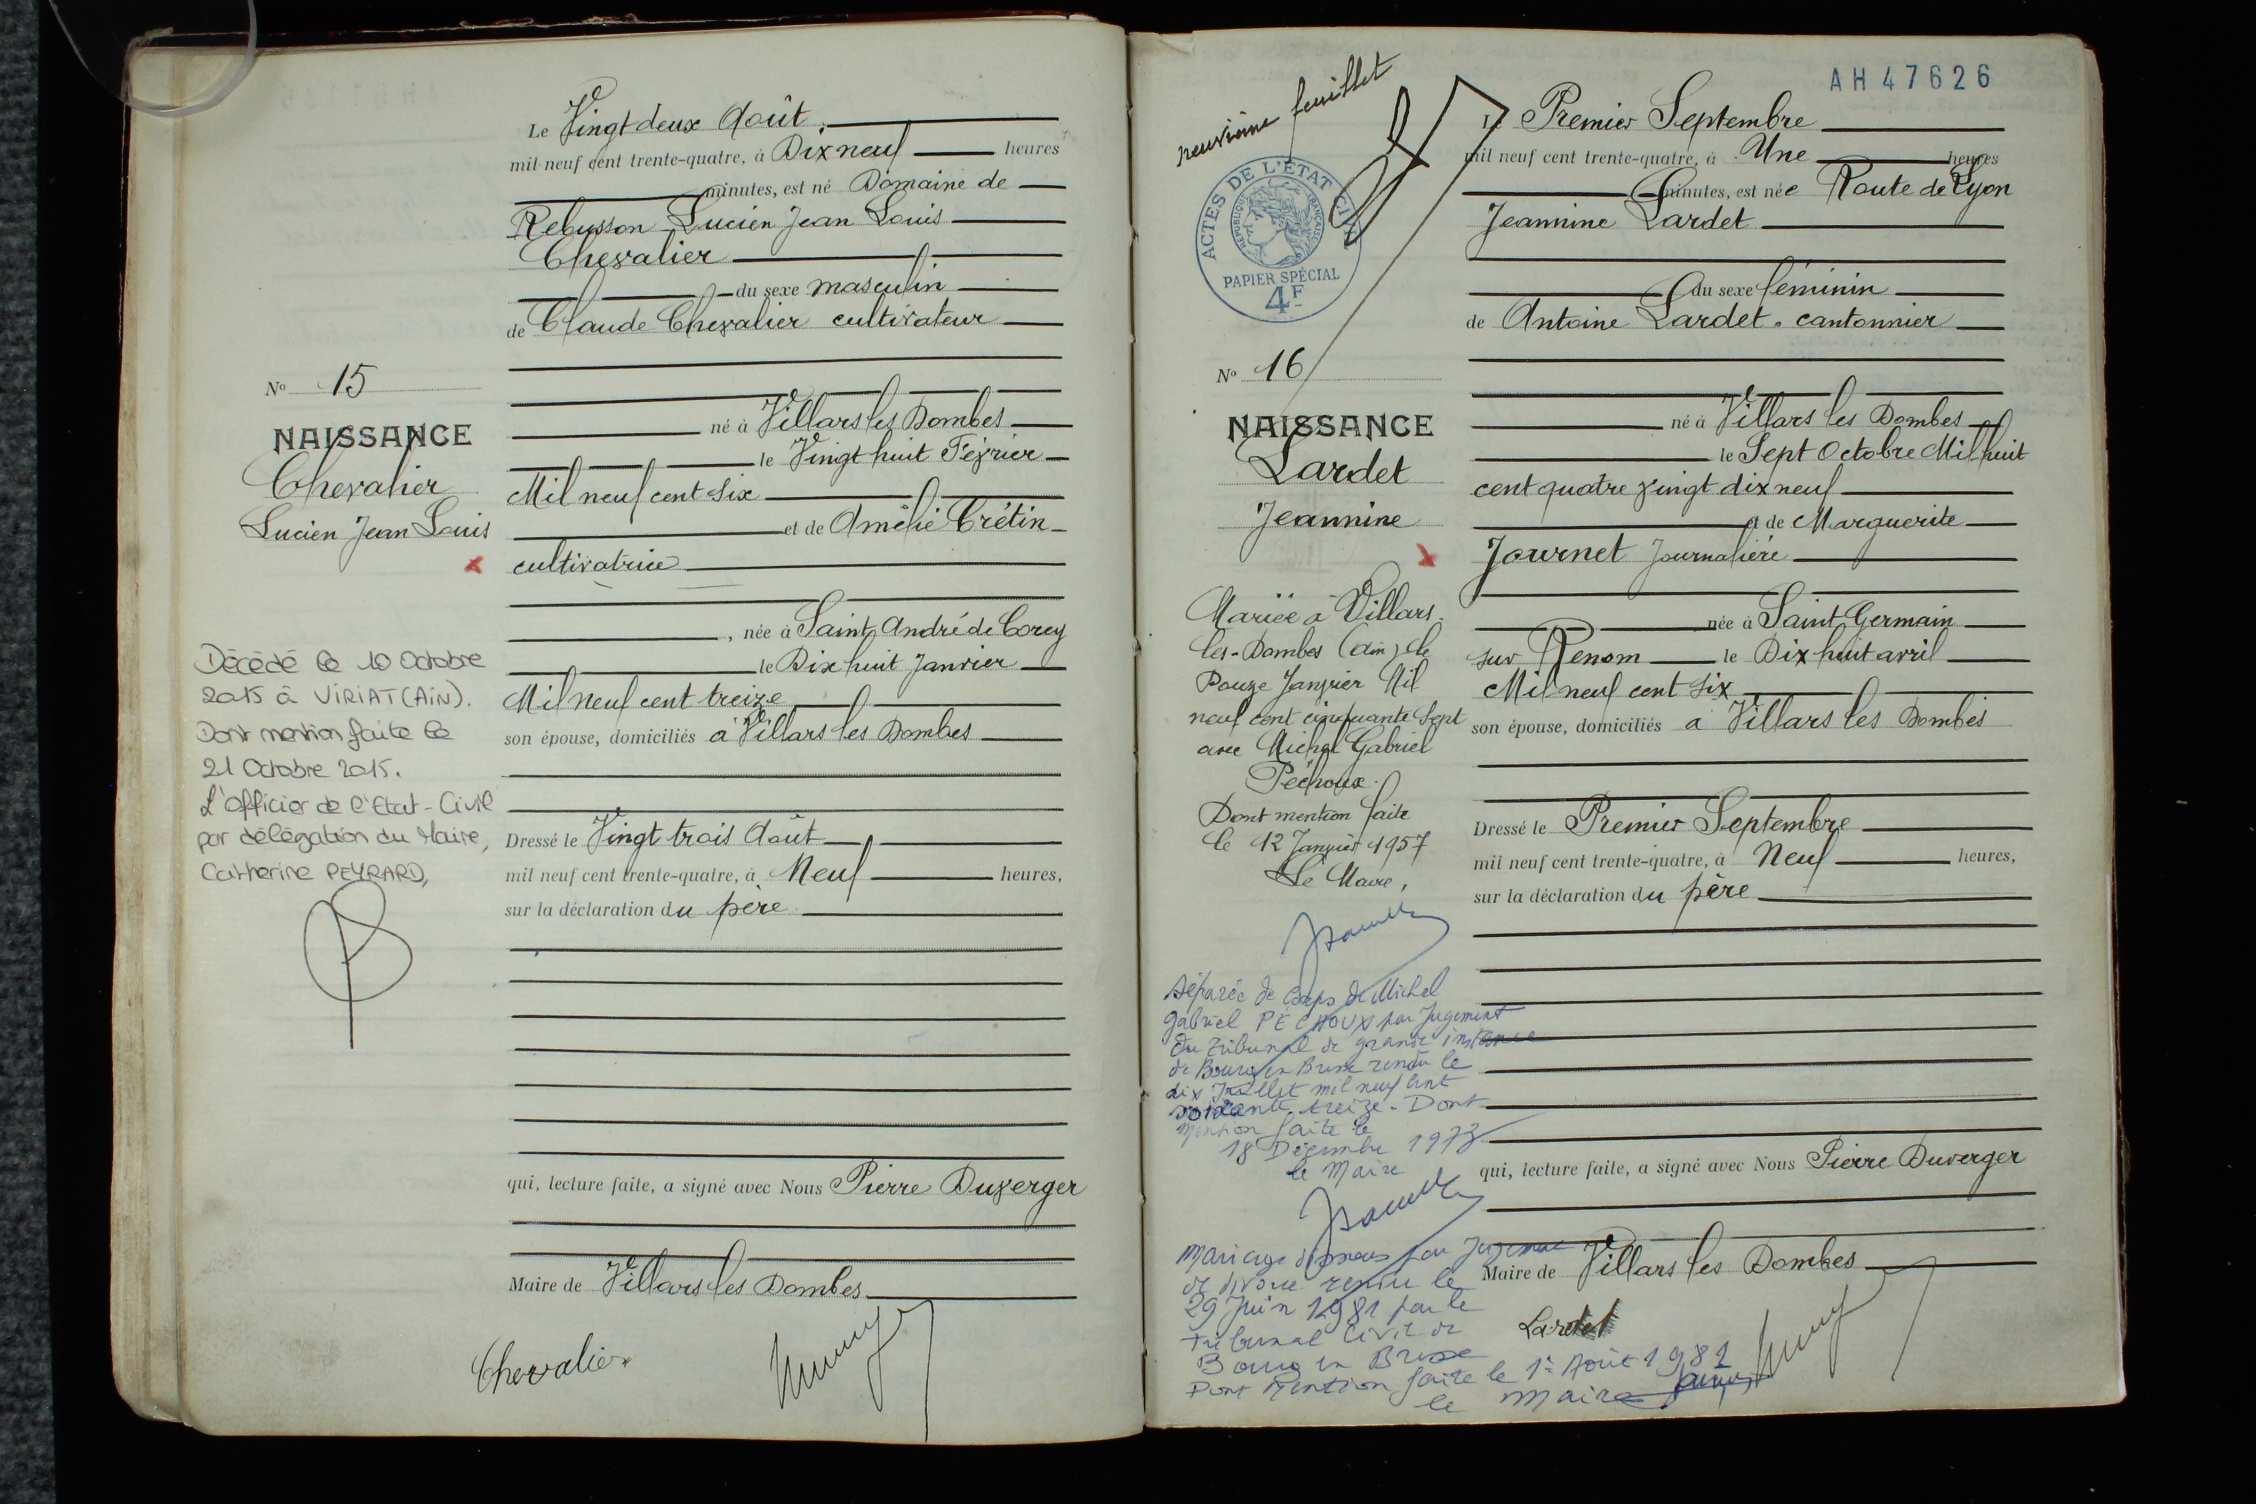 Le Vingt deux Août
mil neuf cent trente-quatre, à Dix neuf heures
minutes, est né Domaine de
Rebusson Lucien Jean Louis
Chevalier
du sexe masculin
de Claude Chevalier cultivateur
né à Villars les Dombes
le Vingt huit Février
Mil neuf cent six
et de Amélie Crétin
cultivatrice
, née à Saint André de Corcy
le Dix huit Janvier
Mil neuf cent treize
son épouse, domiciliés à Villars les Dombes
Dressé le Vingt trois Août
mil neuf cent trente-quatre, à Neuf heures,
sur la déclaration du père
qui, lecture faite, a signé avec Nous Pierre Duverger
Maire de Villars les Dombes
Chevalier
No 15
NAISSANCE
Chevalier
Lucien Jean Louis
x
Décédé le 10 Octobre
2015 à VIRIAT (AiN).
Dont mention faite le
21 Octobre 2015.
L'officier de l'Etat-Civil
par délégation du Maire,
Catherine PEYRARD,
neuvième feuillet
AH47626
ACTES DE L'ÉTAT CIVIL
RÉPUBLIQUE FRANÇAISE
PAPIER SPÉCIAL
4F
Le Premier Septembre
mil neuf cent trente-quatre, à Une heures
minutes, est née Route de Lyon
Jeannine Lardet
du sexe féminin
de Antoine Lardet. cantonnier
né à Villars les Dombes
le Sept Octobre Mil huit
cent quatre vingt dix neuf
et de Marguerite
Journet Journalière
née à Saint Germain
sur Renom le Dix huit avril
Mil neuf cent six
son épouse, domiciliés à Villars les Dombes
Dressé le Premier Septembre
mil neuf cent trente-quatre, à Neuf heures,
sur la déclaration du père
qui, lecture faite, a signé avec Nous Pierre Duverger
Maire de Villars les Dombes
Lardet
No 16
NAISSANCE
Lardet
Jeannine
x
Mariée à Villars
les-Dombes (Ain) le
Douze Janvier Mil
neuf cent cinquante Sept
avec Michel Gabriel
Péchoux.
Dont mention faite
le 12 Janvier 1957
Le Maire,
Séparée de Corps de Michel
Gabriel PECHOUX par Jugement
du Tribunal de grande instance
de Bourg en Bresse rendu le
dix Juillet mil neuf cent
soixante treize - Dont
Mention faite le
18 Décembre 1973
le Maire
Mariage dissous par Jugement
de divorce rendu le
29 Juin 1981 par le
Tribunal Civil de
Bourg en Bresse
Dont Mention faite le 1er Août 1981
le Maire